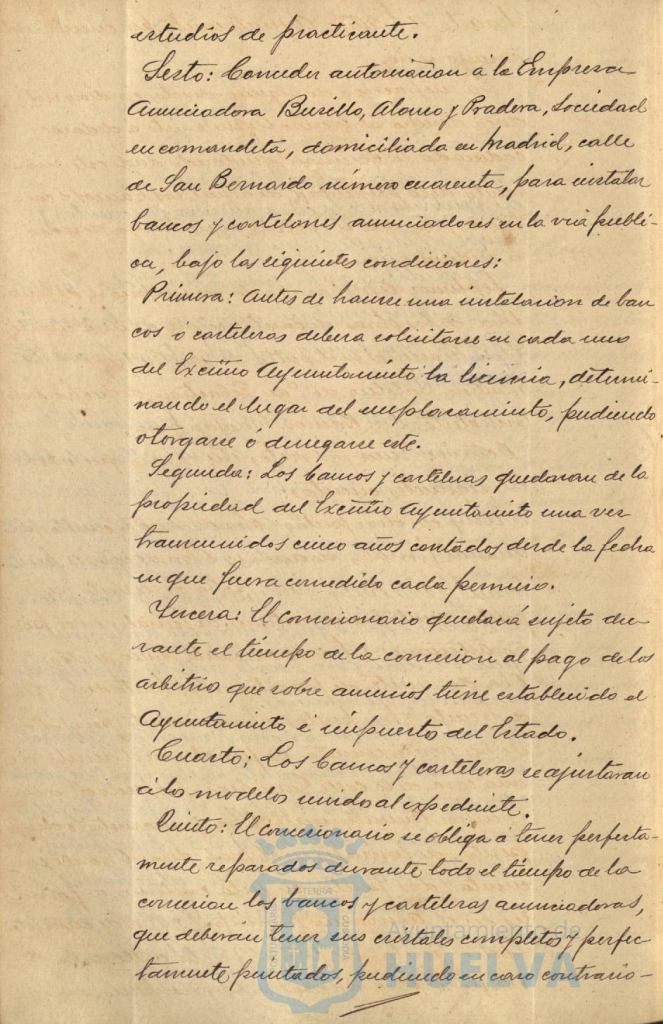 estudios de practicante.
Sesto: Conceder autorización á la Empresa
Anunciadora Busillo, Alonso y Pradera, Sociedad
en comandita, domiciliada en Madrid, calle
de San Bernardo número cuarenta, para instalar
bancos y cartelones anunciadores en la vía públi-
ca, bajo las siguientes condiciones:
Primera: Antes de hacerse una instalacion de ban
cos ó carteleras debera solicitarse en cada uno
del Excmo Ayuntamiento la licencia, determi-
nando el lugar del emplazamiento, pudiendo
otorgarse ó denegarse este.
Segunda: Los bancos y carteleras quedaran de la
propiedad del Excmo Ayuntamiento una vez
transcurridos cinco años contados desde la fecha
en que fuera concedido cada permiso.
Tercera: El concesionario quedará sujeto du-
rante el tiempo de la concesion al pago de los
arbitrio que sobre anuncios tiene establecido el
Ayuntamiento é impuesto del Estado.
Cuarto: Los bancos y carteleras se ajustaran
á los modelos unido al expediente.
Quinto: El concesionario se obliga á tener perfecta-
mente reparados durante todo el tiempo de la
concesion los bancos y carteleras anunciadoras,
que deberán tener sus cristales completos y perfec-
tamente pintados, pudiendo en caso contrario-
Ayuntamiento de
HUELVA